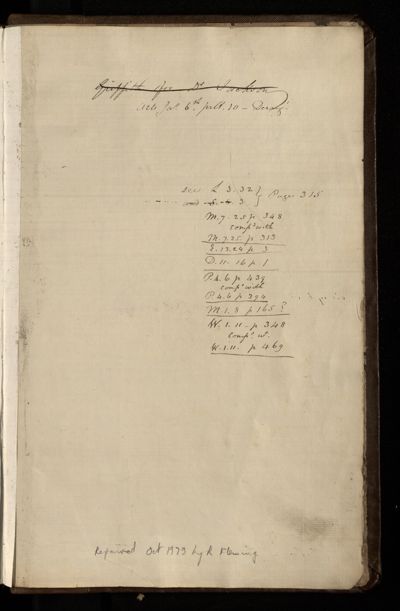 Griffith for Dr Jackson
see L 3.32 } Page 315
and 3. }
M.7.25 p 348
comp^d with
M.7.25. p 313
E.13.24 p 3
D.11.16 p. 1
P.4.6 p 439
comp^d with
P.4.6 p 394
M.1.8 p 165 ?
W.1.11. p 348
comp^d. w.
W.1.11. p 469
Repaired Oct 1973 by R Fleming